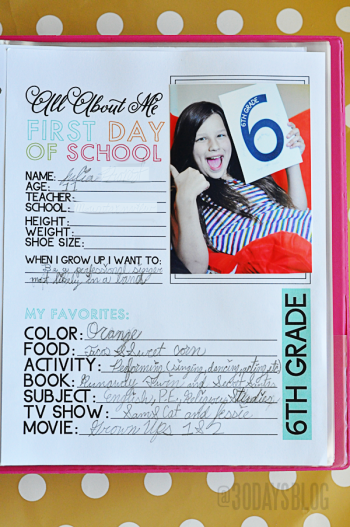 All About Me
FIRST DAY
OF SCHOOL
NAME:
AGE: 11
TEACHER:
SCHOOL:
HEIGHT:
WEIGHT:
SHOE SIZE:
WHEN I GROW UP I WANT TO:
Be a professional singer
most likely in a band
6TH GRADE
6
MY FAVORITES:
COLOR: Orange
FOOD: Sweet corn
ACTIVITY: Performing (singing, dancing, acting, etc)
BOOK: Runaway and
SUBJECT: English, P.E., Studies
TV SHOW: Sam & Cat and Jessie
MOVIE: Grown Ups 1&2
6TH GRADE
@30DAYSBLOG